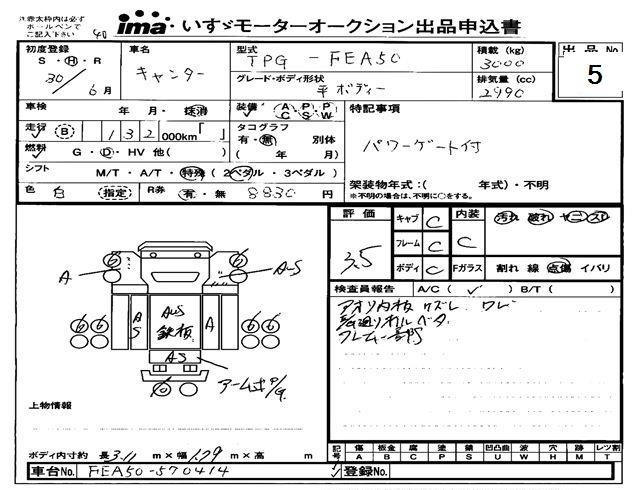 ※赤太枠内は必ず
ボールペンで
ご記入下さい
40
ima いすゞモーターオークション出品申込書
初度登録
S・H・R
30 / 6月
車名
キャンター
型式
TPG - FEA50
積載 (kg)
3000
出品No
5
グレード・ボディ形状
平ボディー
排気量 (cc)
2990
車検 年 月・抹消
装備 A C P S P W
特記事項
走行 B 132000km「 」
タコグラフ
有・無 別体
( 年 月)
パワーゲート付
燃料 G・D・HV 他( )
シフト M/T・A/T・特殊(2ペダル・3ペダル)
架装物年式:( 年式)・不明
※不明の場合は、不明に○をする。
色 白 (指定)
R券 有・無 8830円
評価 3.5
キャブ C
フレーム C
ボディ C
内装 C
汚れ 破れ ヤニ・スレ
Fガラス 割れ 線 点傷 イバリ
検査員報告 A/C( ✓ ) B/T( )
アオリ内板 クズレ ワレ
フレーム一部S
6 6 6 6
A A-S
6 6 6 6
A S A&S 鉄板 A
AS
アーム式P/G.
上物情報
ボディ内寸約 長3.11 m×幅1.79 m×高 m
記号 傷 A 板金 B 腐 C 補 P 塗 S 錆 凹凸曲 U 波 W 穴 H 跡 M レツ割 T
車台No. FEA50-570414
登録No.